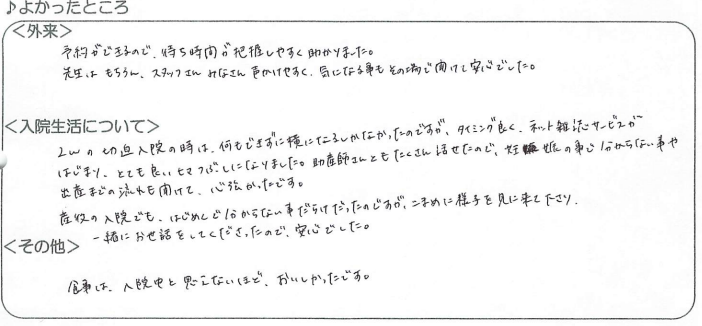 ♪よかったところ
<外来>
予約ができるので、待ち時間が把握しやすく助かりました。
先生は もちろん、スタッフさん みなさん 声かけやすく、気になる事も その場で聞けて安心でした。
<入院生活について>
2wの切迫入院の時は、何もできずに横になるしかなかったのですが、タイミング良く、ネット雑誌サービスが
はじまり、とても良いヒマつぶしになりました。助産師さんともたくさん話せたので、妊娠の事で分からない事や
出産までの流れも聞けて、心強かったです。
産後の入院でも、はじめてで分からない事だらけだったのですが、こまめに様子を見に来て下さり、
一緒にお世話をしてくださったので、安心でした。
<その他>
食事は、入院中と思えないほど、おいしかったです。